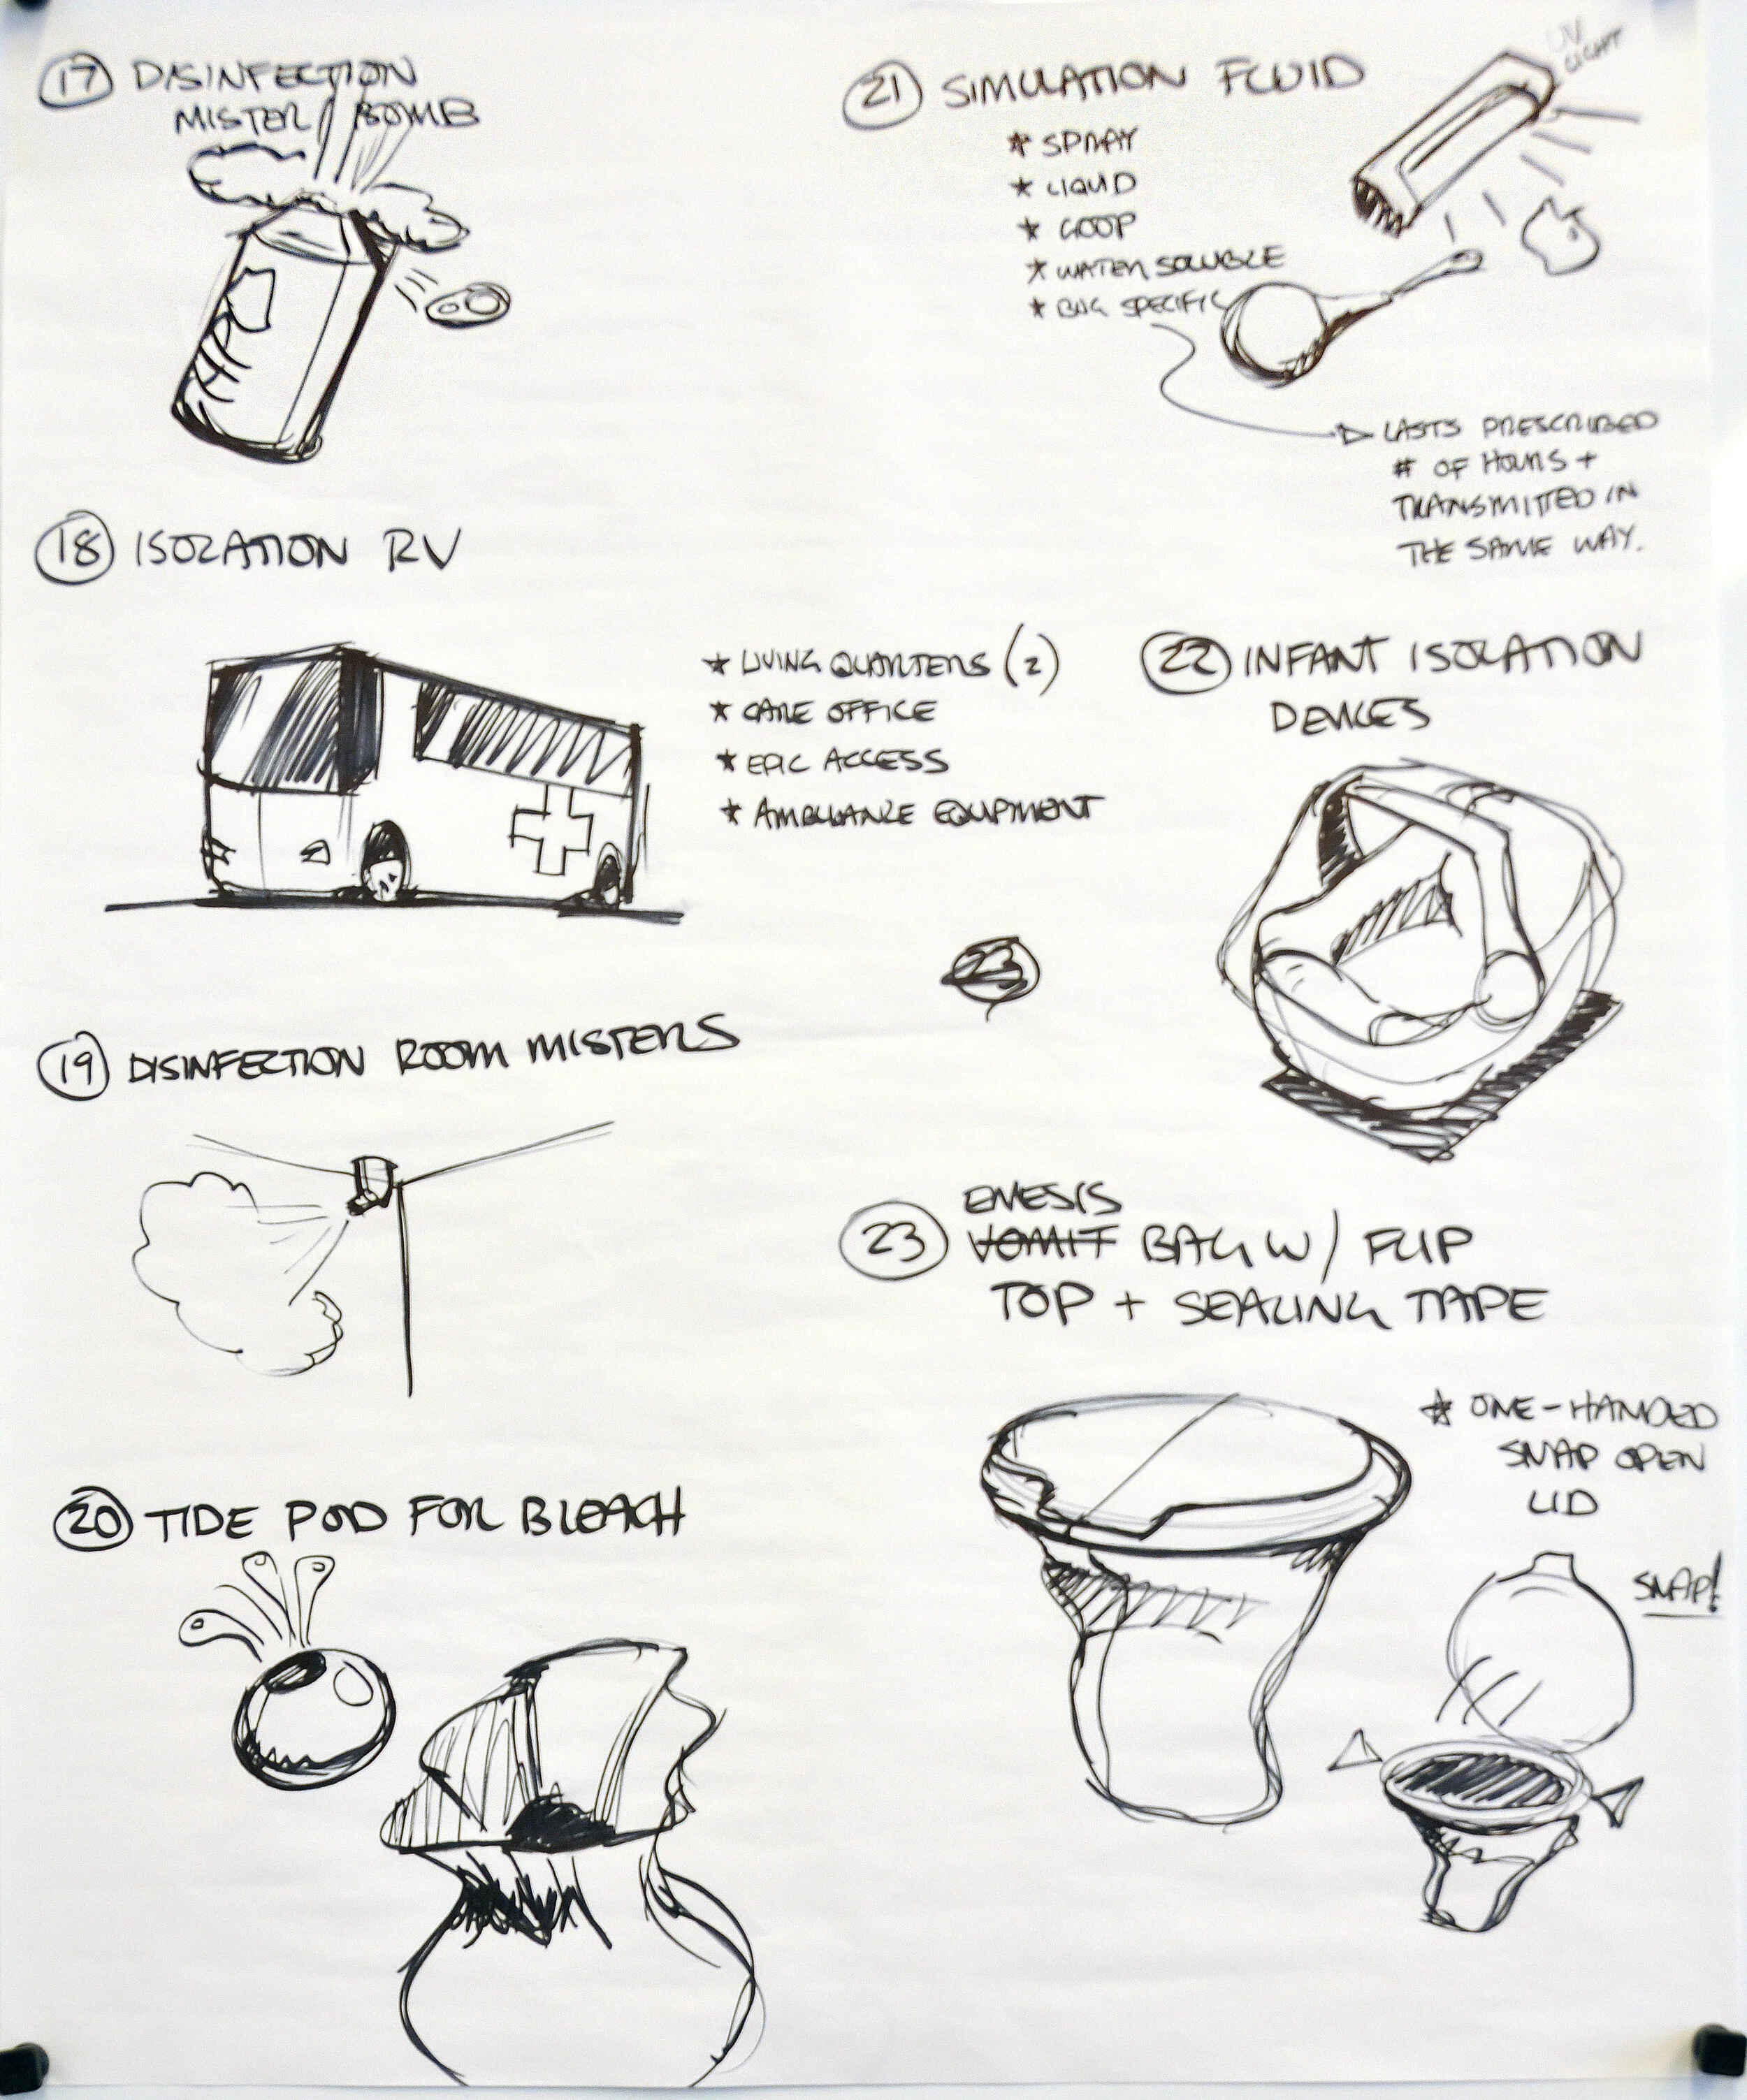 17 DISINFECTION
MISTER / BOMB
18 ISOLATION RV
* LIVING QUARTERS (2)
* CARE OFFICE
* EPIC ACCESS
* AMBULANCE EQUIPMENT
19 DISINFECTION ROOM MISTERS
20 TIDE POD FOR BLEACH
21 SIMULATION FLUID
* SPRAY
* LIQUID
* GOOP
* WATER SOLUBLE
* BUG SPECIFIC
UV
LIGHT
LASTS PRESCRIBED
# OF HOURS +
TRANSMITTED IN
THE SAME WAY.
22 INFANT ISOLATION
DEVICES
23
EMESIS
23 VOMIT BAG W/ FLIP
TOP + SEALING TAPE
* ONE-HANDED
SNAP OPEN
LID
SNAP!